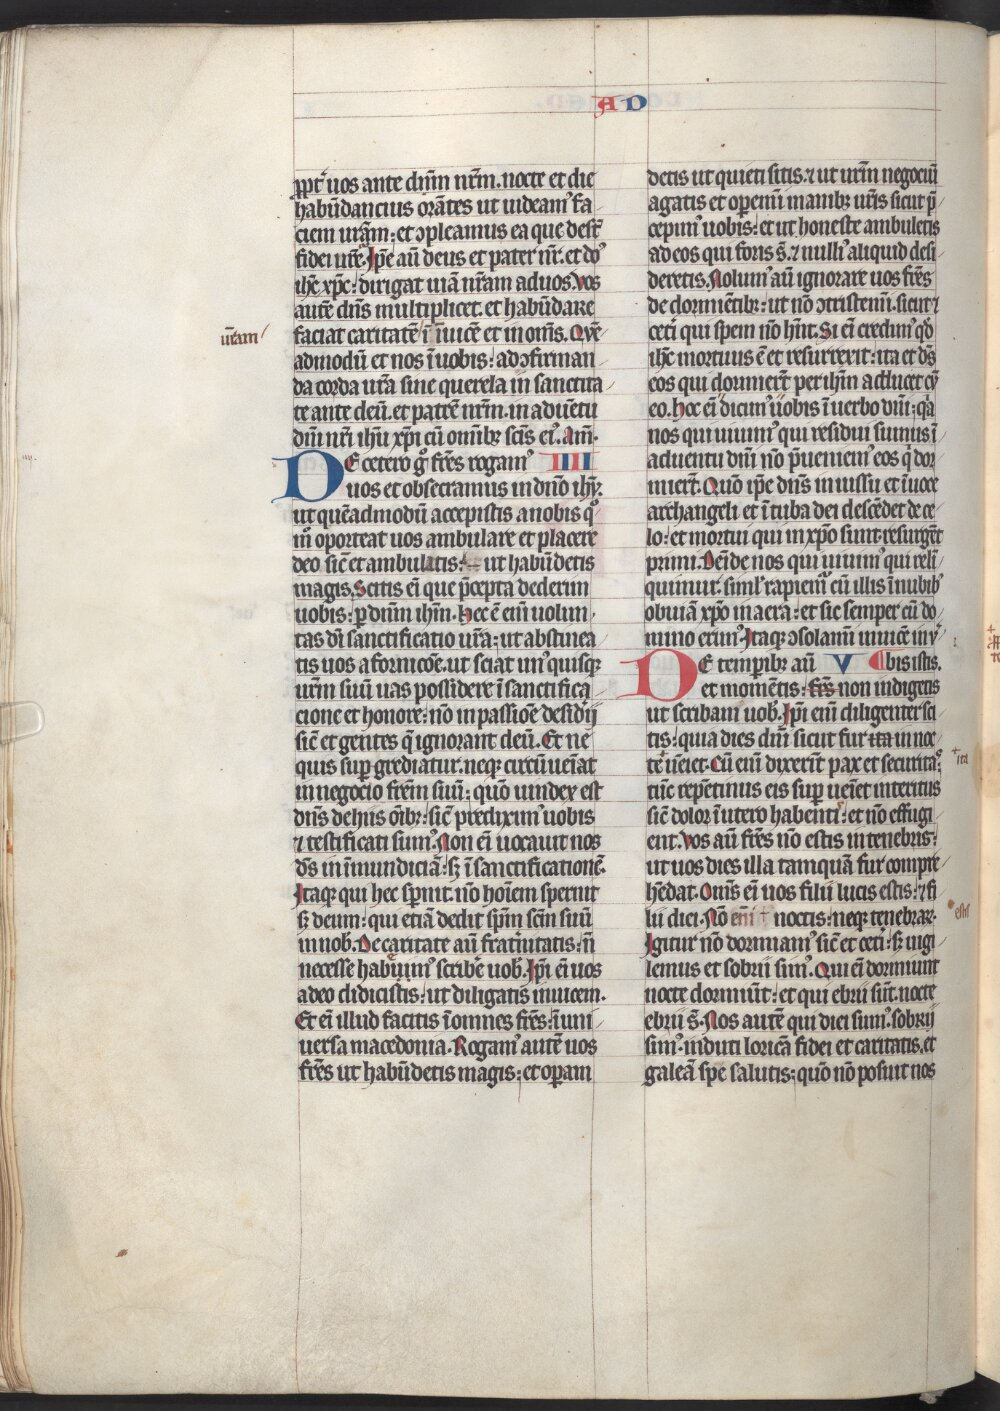 AD
ꝓpt̃ uos ante dñm nrm̃. nocte et die
habũdancius orãtes ut uideam᷒ fa
ciem urãm: et ꝯpleamus ea que dest̃
fidei urẽ. Ip̃e aũ deus et pater nr̃. et do᷒
ihc̃ xp̃c: dirigat uiã nrãm ad uos. Vos
autẽ dñs multiplicet. et habũdare
ur̃am
faciat caritatẽ ĩ ĩuicẽ et in om̃s. Quẽ
admodũ et nos ĩ uobis: ad ꝯfirman
da corda urã sine querela in sanctita
te ante deũ. et patrẽ nrm̃. in aduẽtu
dñi nrĩ ihũ xp̃i cũ omĩbꝫ scĩs ei᷒. am̃.
DE cetero g̃ fr̃es rogam᷒ IIII
uos et obsecramus in dño ihũ.
ut quẽadmodũ accepistis a nobis q̊
m̃ oporteat uos ambulare et placere
deo sic̃ et ambulatis: ut habũdetis
magis. Scitis eĩ que p̃cepta dederim
uobis: ꝑ dñm ihm̃. Hec ẽ eni᷒ uolun
tas dĩ sanctificatio urã: ut abstinea
tis uos a fornicõe. ut sciat un᷒quisqꝫ
urm̃ suũ uas possidere ĩ sanctifica
cione et honore: nõ in passiõe desidĩj
sic̃ et gentes q̃ ignorant deũ. Et ne
quis suꝑgrediatur. neqꝫ circũueĩat
in negocio frẽm suũ: quõ uindex est
dñs de hiis oĩbꝫ: sic̃ predixim᷒ uobis
⁊ testificati sum᷒. Non eĩ uocauit nos
ds̃ in ĩmundiciã: sꝫ ĩ sanctificationẽ.
Itaqꝫ qui hec spnit. nõ hoĩem spernit
sꝫ deum: qui etiã dedit sp̃m scm̃ suũ
in uob̃. De caritate aũ fratnitatis: ñ
necesse habuim᷒ scribẽ uob̃. Ip̃i eĩ uos
a deo didicistis: ut diligatis inuicem.
Et eĩ illud facitis ĩ omnes fr̃es: ĩ uni
uersa macedonia. Rogam᷒ autẽ uos
fr̃es ut habũdetis magis: et oꝑam
detis ut quieti sitis. ⁊ ut urm̃ negociũ
agatis et oꝑemĩ manibꝫ urĩs sicut p̃
cepim᷒ uobis: et ut honeste ambuletis
ad eos qui foris s̃. ⁊ nulli᷒ aliquid desi
deretis. Nolum᷒ aũ ignorare uos fr̃es
de dormiẽtibꝫ: ut nõ ꝯtristemĩ. sicut ⁊
cetĩ qui spem nõ hñt. Si eĩ credim᷒ qd̃
ihc̃ mortuus ẽ et resurrexit: ita et ds̃
eos qui dormiert̃ per ihm̃ adducet cũ
eo. Hoc eĩ dicim᷒ uobis ĩ uerbo dñi: qa
nos qui uiuim᷒ qui residui sumus ĩ
aduentu dñi nõ p̃ueniem᷒ eos q̃ dor
miert̃. Quõ ip̃e dñs in iussu et ĩ uoce
archangeli et ĩ tuba dei descẽdet de ce
lo: et mortui qui in xp̃o sunt resurgẽt
primi. Deĩde nos qui uiuim᷒ qui relĩ
quimur. siml̃ rapiem᷒ cũ illis ĩ nubib᷒
obuiã xp̃o in aera: et sic semper cũ do
mino erim᷒. Itaqꝫ ꝯsolamĩ inuicẽ in v̾
DE tempibꝫ aũ V bis istis.
et momẽtis: fr̃es non indigetis
ut scribam uob̃. Ip̃i eni᷒ diligenter sci
tis: quia dies dñi sicut fur ita in noc
ita
te ueĩet. Cũ eni᷒ dixerĩt pax et securita᷒:
tũc repẽtinus eis suꝑueĩet interitus
sic̃ dolor ĩ utero habenti: et nõ effugi
ent. Vos aũ fr̃es nõ estis in tenebris:
ut uos dies illa tamquã fur compre
hẽdat. Om̃s eĩ uos filii lucis estis: ⁊ fi
lii diei. Nõ eni᷒ noctis: neqꝫ tenebrarꝫ.
estis
Igitur nõ dormiam᷒ sic̃ et cetĩ: sꝫ uigi
lemus et sobrii sim᷒. Qui eĩ dormiunt
nocte dormiũt: et qui ebrii sũt. nocte
ebrii s̃. Nos autẽ qui diei sum᷒. sobrij
sim᷒. induti loricã fidei et caritatis. et
galeã spẽ salutis: quõ nõ posuit nos